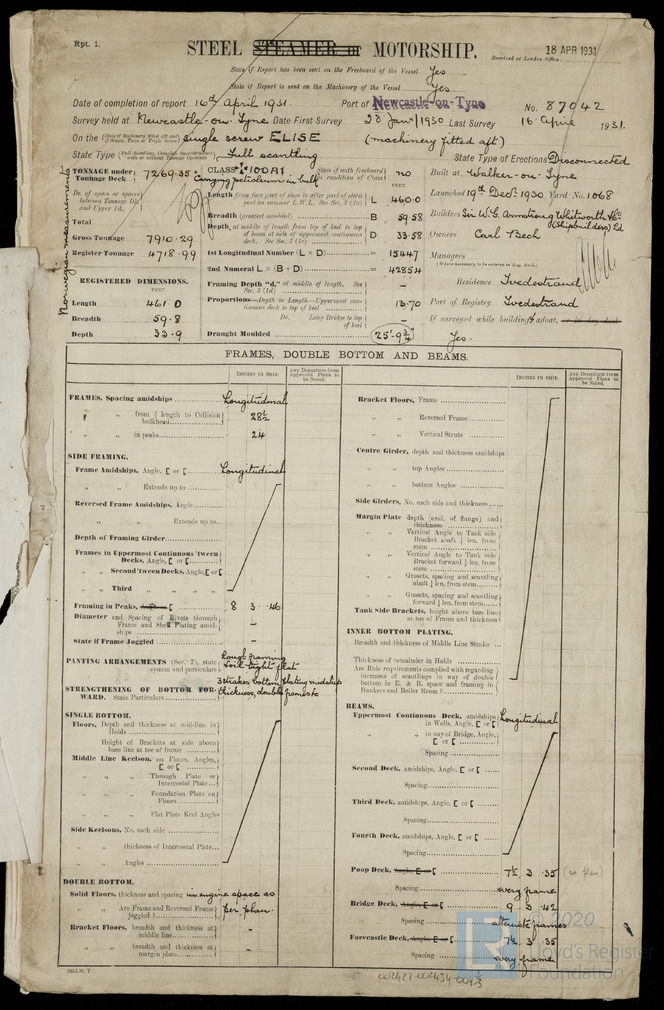 Rpt. 1.
STEEL STEAMER or MOTORSHIP.
18 APR 1931
Received at London Office
State if Report has been sent on the Freeboard of the Vessel Yes
State if Report is sent on the Machinery of the Vessel Yes
Date of completion of report 16th April 1931. Port of Newcastle-on-Tyne No. 87042
Survey held at Newcastle-on-Tyne Date First Survey 28 Jany/1930 Last Survey 16 April 1931.
On the single screw ELISE (machinery fitted aft)
State Type Full scantling State Type of Erections Disconnected
TONNAGE under Tonnage Deck 7269.35
CLASS 100A1 State if with freeboard as condition of Class no
Carrying petroleum in bulk
Built at Walker-on-Tyne
Launched 19th Decr 1930 Yard No. 1068
Do. of space or spaces between Tonnage Dk. and Upper Dk.
Total
Gross Tonnage 7910.29
Register Tonnage 4718.99
Norwegian measurements
REGISTERED DIMENSIONS.
FEET.
Length 461.0
Breadth 59.8
Depth 33.9
FEET.
Length from fore part of stem to after part of stern post on summer L.W.L. See Sec. 3 (1a) L 460.0
Breadth (greatest moulded) B 59.58
Depth, at middle of length from top of keel to top of beam at side of uppermost continuous deck. See Sec. 3 (1c) D 33.58
1st Longitudinal Number (L × D) = 15447
2nd Numeral L × (B + D) = 42854
Framing Depth "d," at middle of length. See Sec. 3 (1d)
Proportions—Depth to Length—Uppermost continuous deck to top of keel 13.70
Do. Long Bridge to top of keel
Draught Moulded 25'-9¾"
Builders Sir W.G. Armstrong Whitworth & Co (Shipbuilders) Ld
Owners Carl Bech
Managers
Residence Tvedestrand
Port of Registry Tvedestrand
If surveyed while building, afloat, or in dry dock
Yes.
FRAMES, DOUBLE BOTTOM AND BEAMS.
INCHES IN SHIP.
Any Departure from Approved Plans to be Noted.
INCHES IN SHIP.
Any Departure from Approved Plans to be Noted.
FRAMES, Spacing amidships Longitudinal
" " from ⅗ length to Collision bulkhead 28½
" " in peaks 24
SIDE FRAMING.
Frame Amidships, Angle, [ or [ Longitudinal
" " Extends up to
Reversed Frame Amidships, Angle
" " Extends up to
Depth of Framing Girder
Frames in Uppermost Continuous 'tween Decks, Angle, [ or [
" " Second 'tween Decks, Angle, [ or [
" " Third " " " "
Framing in Peaks, Angle or [ 8 3 .46
Diameter and Spacing of Rivets through Frame and Shell Plating amidships –
State if Frame Joggled –
PANTING ARRANGEMENTS (Sec. 7), state system and particulars Longl framing Oil tight flat
STRENGTHENING OF BOTTOM FORWARD. State Particulars 3 strakes bottom plating midship thickness, double frames to
SINGLE BOTTOM.
Floors, Depth and thickness at mid-line in Holds
Height of Brackets at side above base line at toe of frame
Middle Line Keelson, on Floors, Angles, [ or [
" " Through Plate or Intercostal Plate
" " Foundation Plate on Floors
" " Flat Plate Keel Angles
Side Keelsons, No. each side
" " thickness of Intercostal Plate
" " Angles
DOUBLE BOTTOM.
Solid Floors, thickness and spacing in engine space as
" " Are Frame and Reversed Frame joggled? per plan
Bracket Floors, breadth and thickness at middle line –
" " breadth and thickness at margin plate –
Bracket Floors, Frame
" " Reversed Frame
" " Vertical Struts
Centre Girder, depth and thickness amidships
" " top Angles
" " bottom Angles
Side Girders, No. each side and thickness
Margin Plate depth (excl. of flange) and thickness
" " Vertical Angle to Tank side Bracket abaft ¼ len. from stem
" " Vertical Angle to Tank side Bracket forward ¼ len. from stem
" " Gussets, spacing and scantling abaft ¼ len. from stem
" " Gussets, spacing and scantling forward ¼ len. from stem
Tank Side Brackets, height above base line at toe of Frame and thickness
INNER BOTTOM PLATING.
Breadth and thickness of Middle Line Strake
Thickness of remainder in Holds
Are Rule requirements complied with regarding increase of scantlings in way of double bottom in E. & B. space and framing in Bunkers and Boiler Room?
BEAMS.
Uppermost Continuous Deck, amidships in Wells, Angle, [ or [ Longitudinal
" " in way of Bridge, Angle, [ or [
Spacing
Second Deck, amidships, Angle, [ or [
Spacing
Third Deck, amidships, Angle, [ or [
Spacing
Fourth Deck, amidships, Angle, [ or [
Spacing
Poop Deck, Angle, [ or [ 7½ 3 .35 (as plan)
Spacing every frame
Bridge Deck, Angle, [ or [ 9 3 .42
Spacing alternate frames
Forecastle Deck, Angle, [ or [ 7½ 3 .35
Spacing every frame
© 2020
Lloyd's Register
Foundation
002427-002434-0043